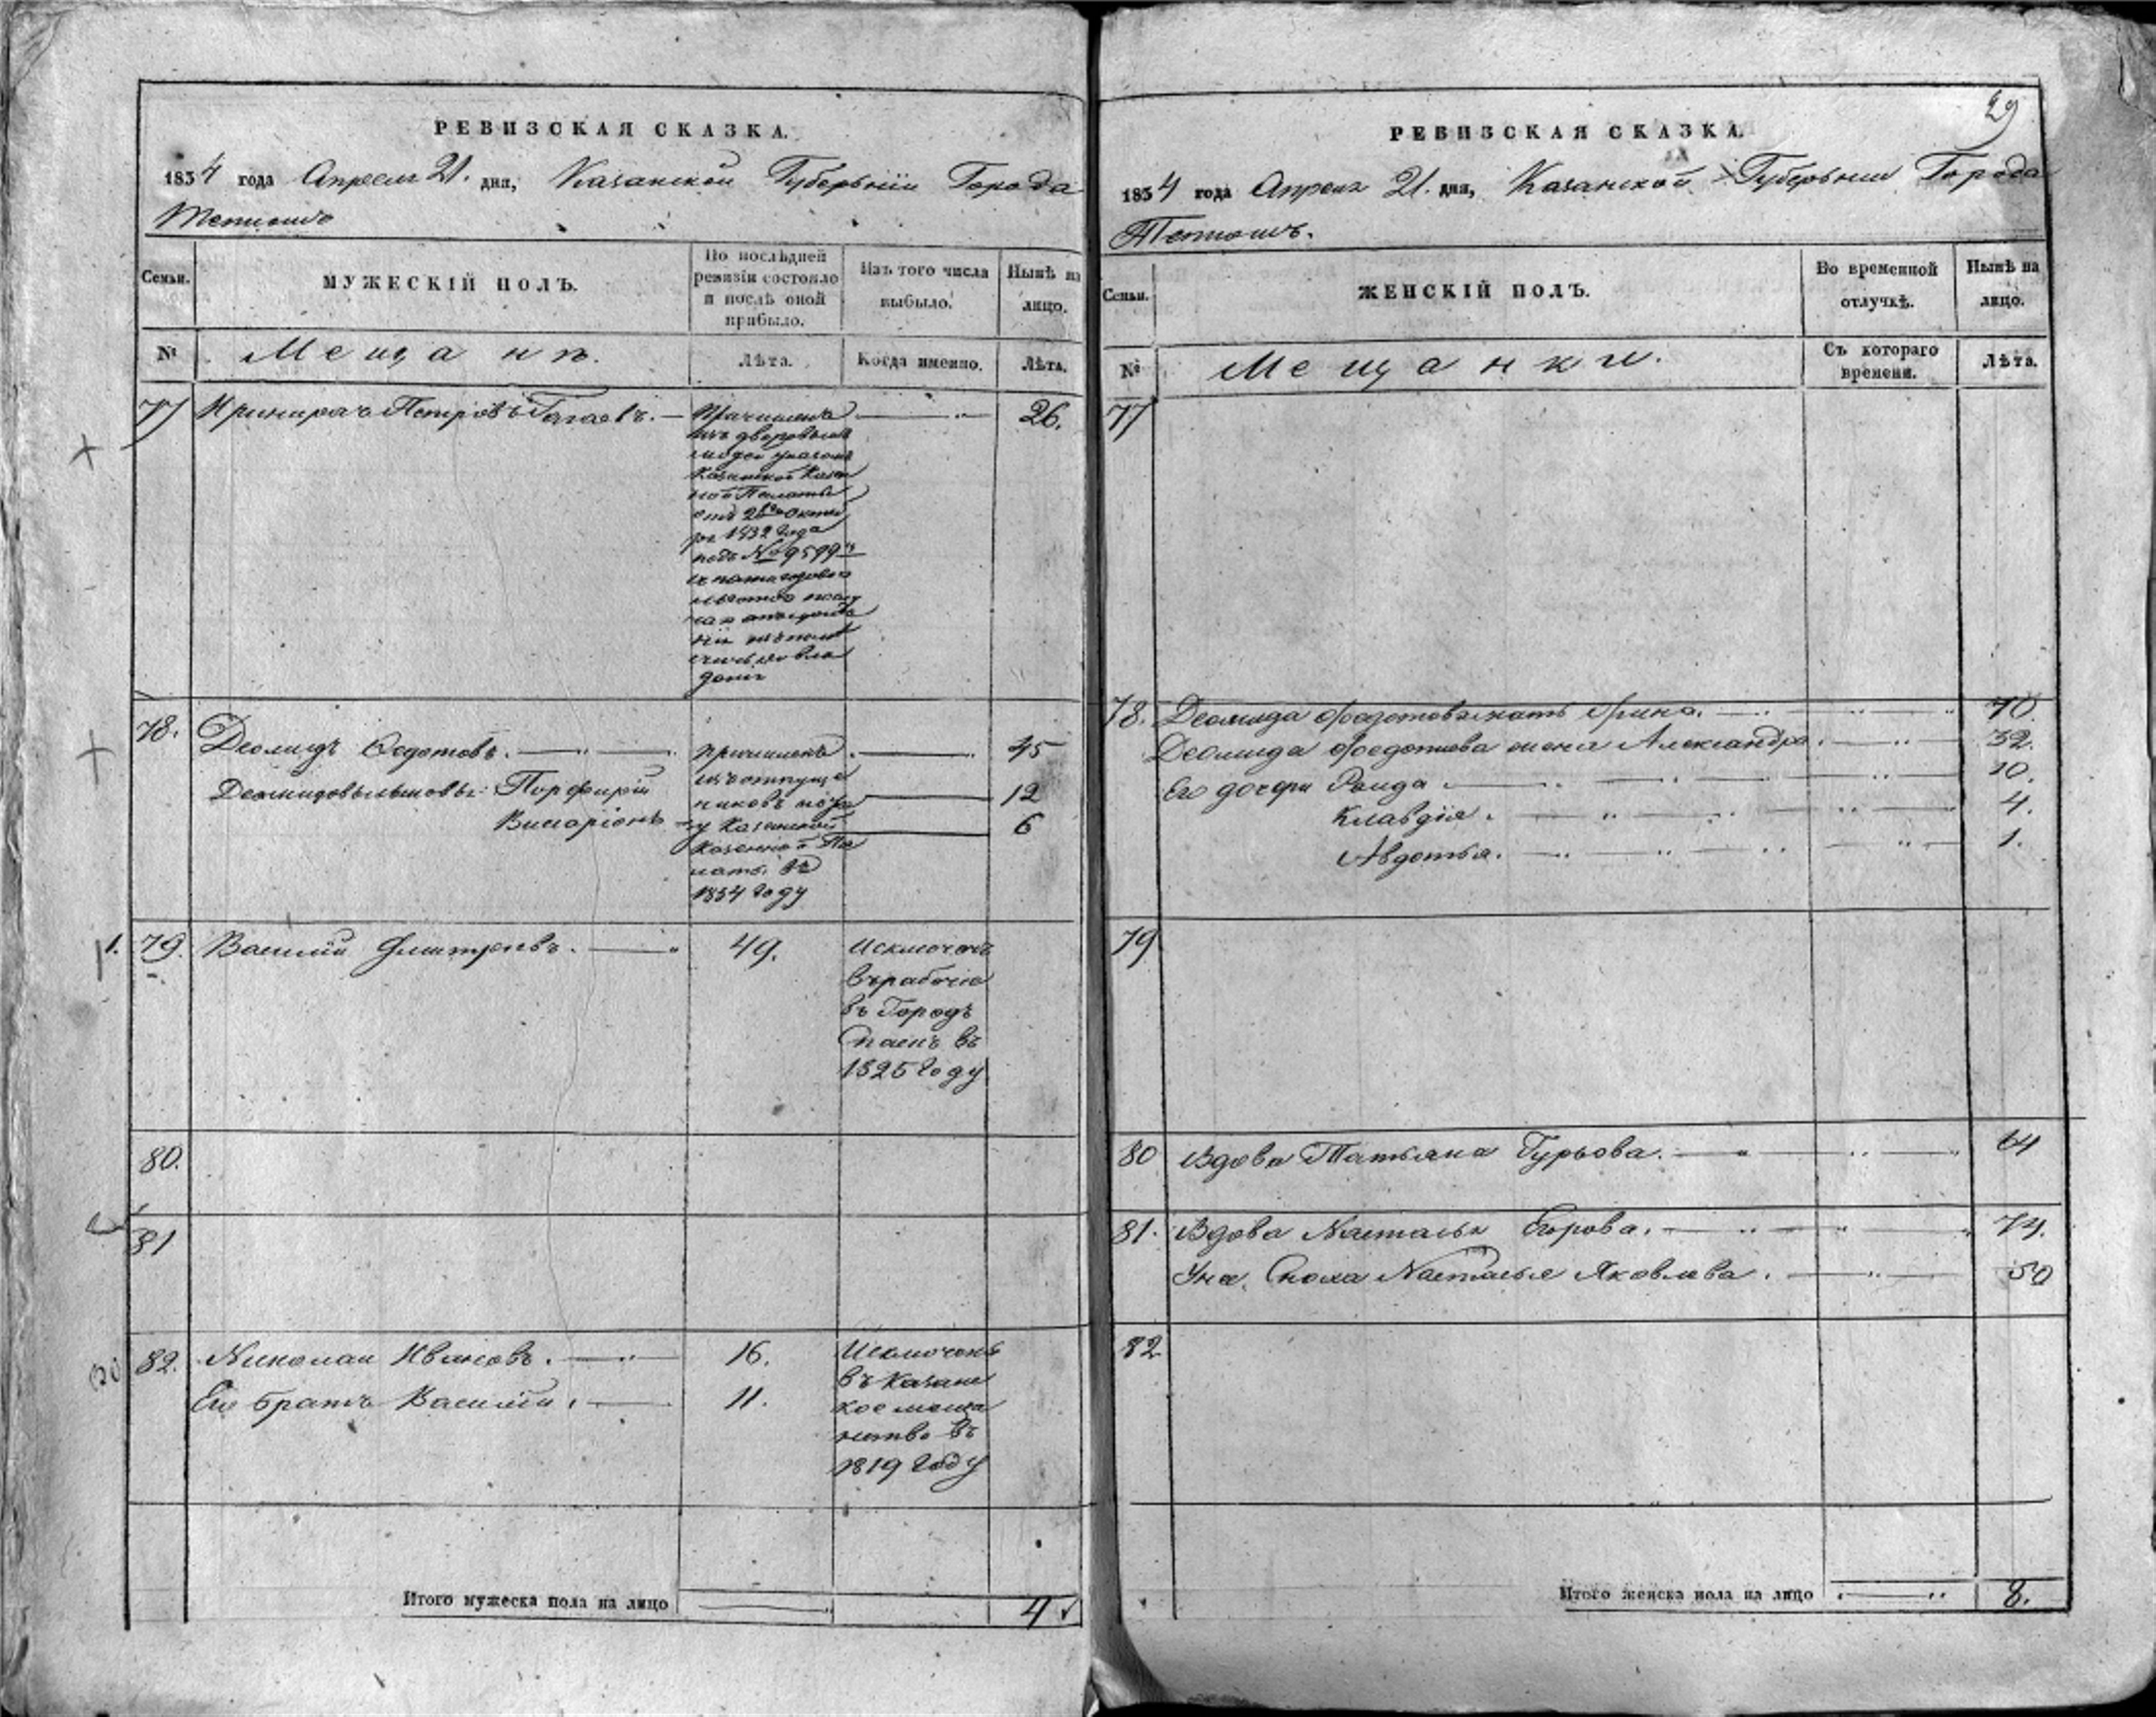 РЕВИЗСКАЯ СКАЗКА.
1834 года Апреля 21. дня, Казанской Губерніи Города
Тетюшъ
Семьи. МУЖЕСКІЙ ПОЛЪ. По послѣдней ревизіи состояло и послѣ оной прибыло. Изъ того числа выбыло. Нынѣ на лицо.
№ Мещанъ. Лѣта. Когда именно. Лѣта.
77 Петровъ 26.
Причисленъ
изъ дворовыхъ
людей указомъ
Казанской Казен
ной Палаты
октяб
ря 1832 года
подъ № 9599
78. Деомидъ Федотовъ. 45
Деомидовы сыновья: Порфирій 12
Висаріонъ 6
причислены
изъ отпуще
никовъ
Казанской
Казенной Па
латы въ
1834 году
1. 79. Василій Дмитріевъ. 49.
Исключенъ
въ рабочіе
въ Городъ
Спаскъ въ
1825 году
80.
81
82. Николай Ивановъ. 16.
Его братъ Василій. 11.
Исключены
въ Казанс
кое меща
нство въ
1819 году
Итого мужеска пола на лицо 4
29
РЕВИЗСКАЯ СКАЗКА.
1834 года Апреля 21. дня, Казанской Губерніи Города
Тетюшъ.
Семьи. ЖЕНСКІЙ ПОЛЪ. Во временной отлучкѣ. Нынѣ на лицо.
№ Мещанки. Съ котораго времени. Лѣта.
77
78. Деомида Федотова мать Ирина. 70.
Деомида Федотова жена Александра. 32.
Его дочери Раида 10.
Клавдія. 4.
Авдотья. 1.
79
80 Вдова Татьяна Гурьова. 64
81. Вдова Наталья Егорова. 74.
Сноха Наталья Яковлева. 50
82
Итого женска пола на лицо 8.